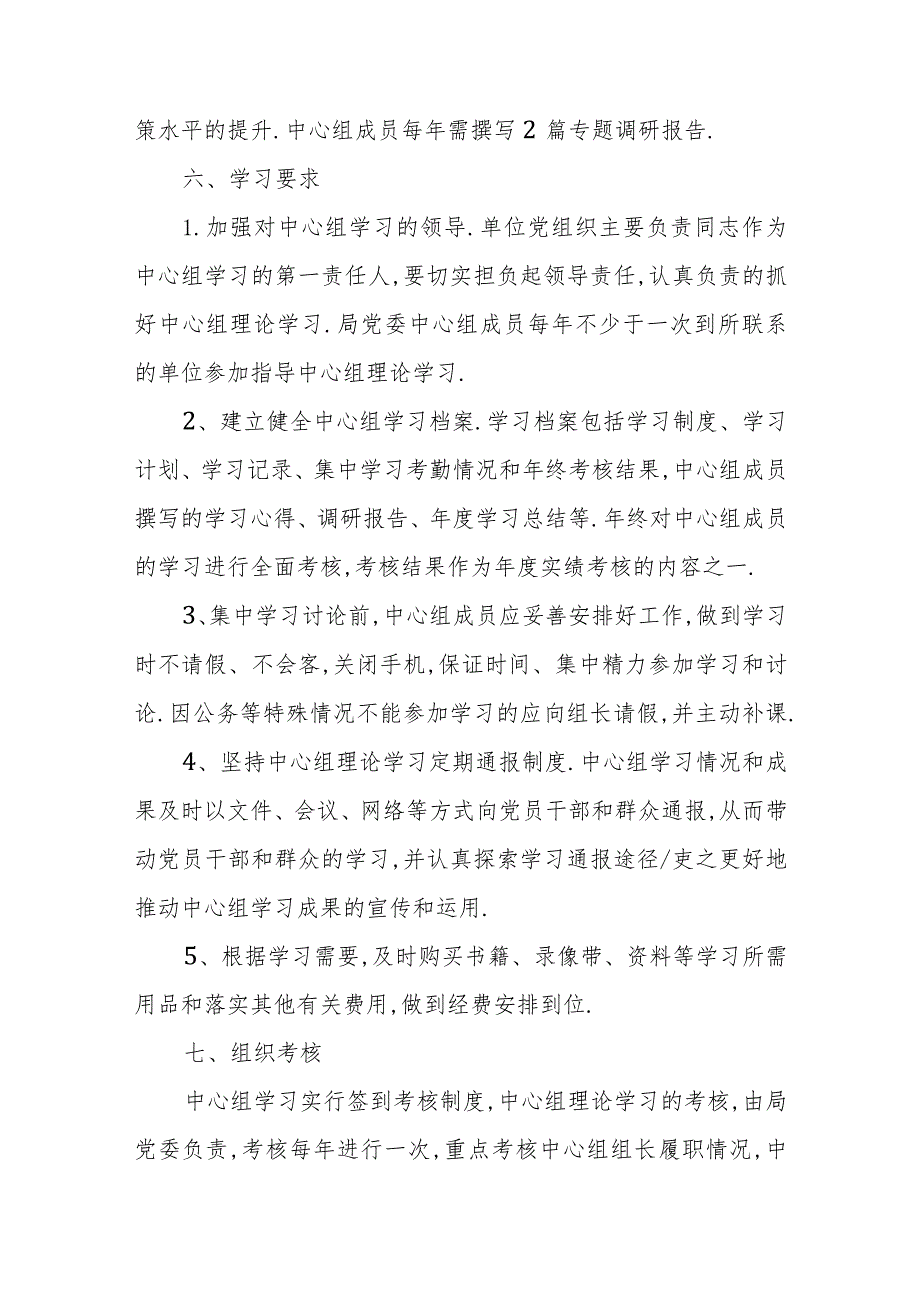 策水平的提升.中心组成员每年需撰写2篇专题调研报告.
六、学习要求
1.加强对中心组学习的领导.单位党组织主要负责同志作为
中心组学习的第一责任人,要切实担负起领导责任,认真负责的抓
好中心组理论学习.局党委中心组成员每年不少于一次到所联系
的单位参加指导中心组理论学习.
2、建立健全中心组学习档案.学习档案包括学习制度、学习
计划、学习记录、集中学习考勤情况和年终考核结果,中心组成员
撰写的学习心得、调研报告、年度学习总结等.年终对中心组成员
的学习进行全面考核,考核结果作为年度实绩考核的内容之一.
3、集中学习讨论前,中心组成员应妥善安排好工作,做到学习
时不请假、不会客,关闭手机,保证时间、集中精力参加学习和讨
论.因公务等特殊情况不能参加学习的应向组长请假,并主动补课.
4、坚持中心组理论学习定期通报制度.中心组学习情况和成
果及时以文件、会议、网络等方式向党员干部和群众通报,从而带
动党员干部和群众的学习,并认真探索学习通报途径/吏之更好地
推动中心组学习成果的宣传和运用.
5、根据学习需要,及时购买书籍、录像带、资料等学习所需
用品和落实其他有关费用,做到经费安排到位.
七、组织考核
中心组学习实行签到考核制度,中心组理论学习的考核,由局
党委负责,考核每年进行一次,重点考核中心组组长履职情况,中